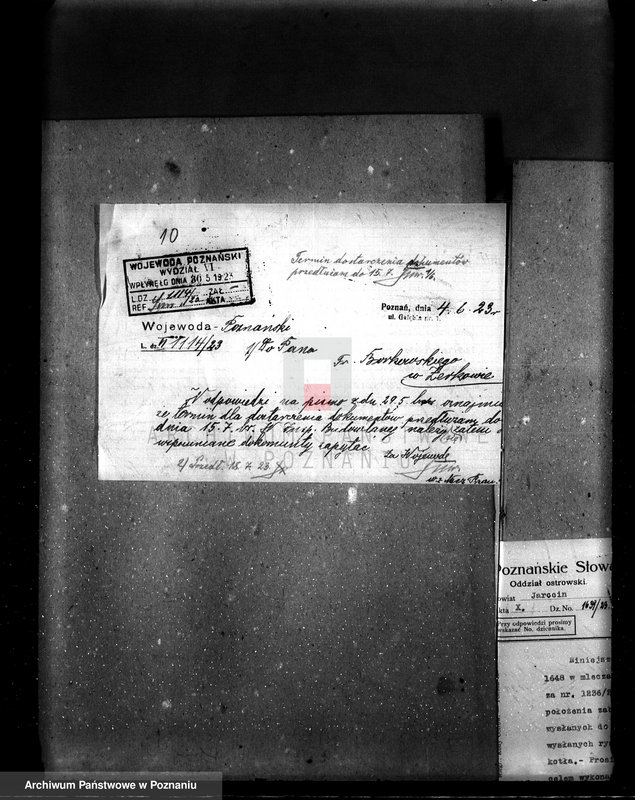 10
WOJEWODA POZNAŃSKI
WYDZIAŁ VI
WPŁYNĘŁO DNIA 30 5 1923
L.DZ. ZAŁ. —
REF.
Termin dostarczenia dokumentów
przedłużam do 15. 7.
Poznań, dnia 4. 6. 23 r.
ul. Gołębia nr. 1.
Wojewoda - Poznański
L. dz. VI 1114/23
1/ Do Pana
Fr. Borkowskiego
w Żerkowie
W odpowiedzi na pismo z dn 29.5 br. oznajmia
że termin dla dostarczenia dokumentów przedłużam do
dnia 15. 7. br. Budowlanej należy zatem
wspomniane dokumenty
za Wojewodę
2/ Przedł. 15. 7. 23.
Poznańskie Słowa
Oddział ostrowski.
owiat Jarocin
kta X. Dz. No.
Przy odpowiedzi prosimy
wskazać No. dziennika.
Niniejsz
1648 w mlecza
za nr. 1236/
położenia zab
wysłanych do
wysłanych ry
kotła.- Prosi
celem wykona
ARCHIWUM PAŃSTWOWE
W POZNANIU
Archiwum Państwowe w Poznaniu